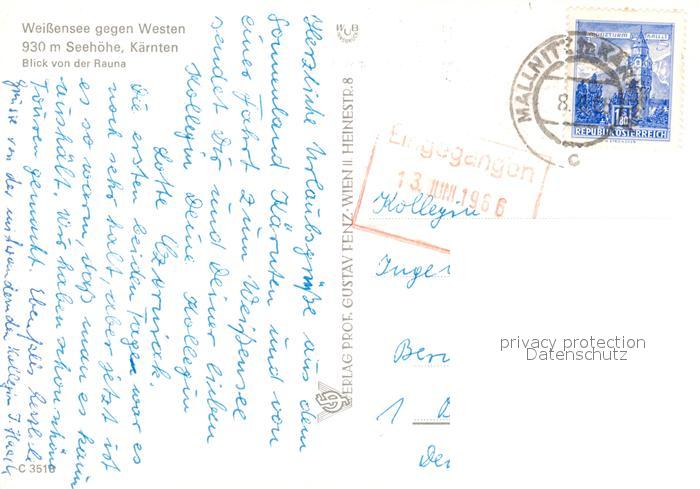 Weißensee gegen Westen
930 m Seehöhe, Kärnten
Blick von der Rauna
Herzliche Urlaubsgrüße aus dem
Sonnenland Kärnten und von
einer Fahrt zum Weißensee
sendet Dir und Deiner lieben
Kollegin Deine Kollegin
Lotte
Die ersten beiden Tage war es
noch sehr kalt, aber jetzt ist
es so warm, daß man es kaum
aushält. Wir haben schon schöne
Touren gemacht. Ebenfalls herzliche
Grüsse von der mitwandernden Kollegin J.
C 3518
WUB
VERLAG PROF. GUSTAV FENZ, WIEN II, HEINESTR. 8
MALLNITZ
8.
c
REPUBLIK ÖSTERREICH
Eingegangen
13. JUNI 1966
Kollegin
Inge
Ber
1
privacy protection
Datenschutz